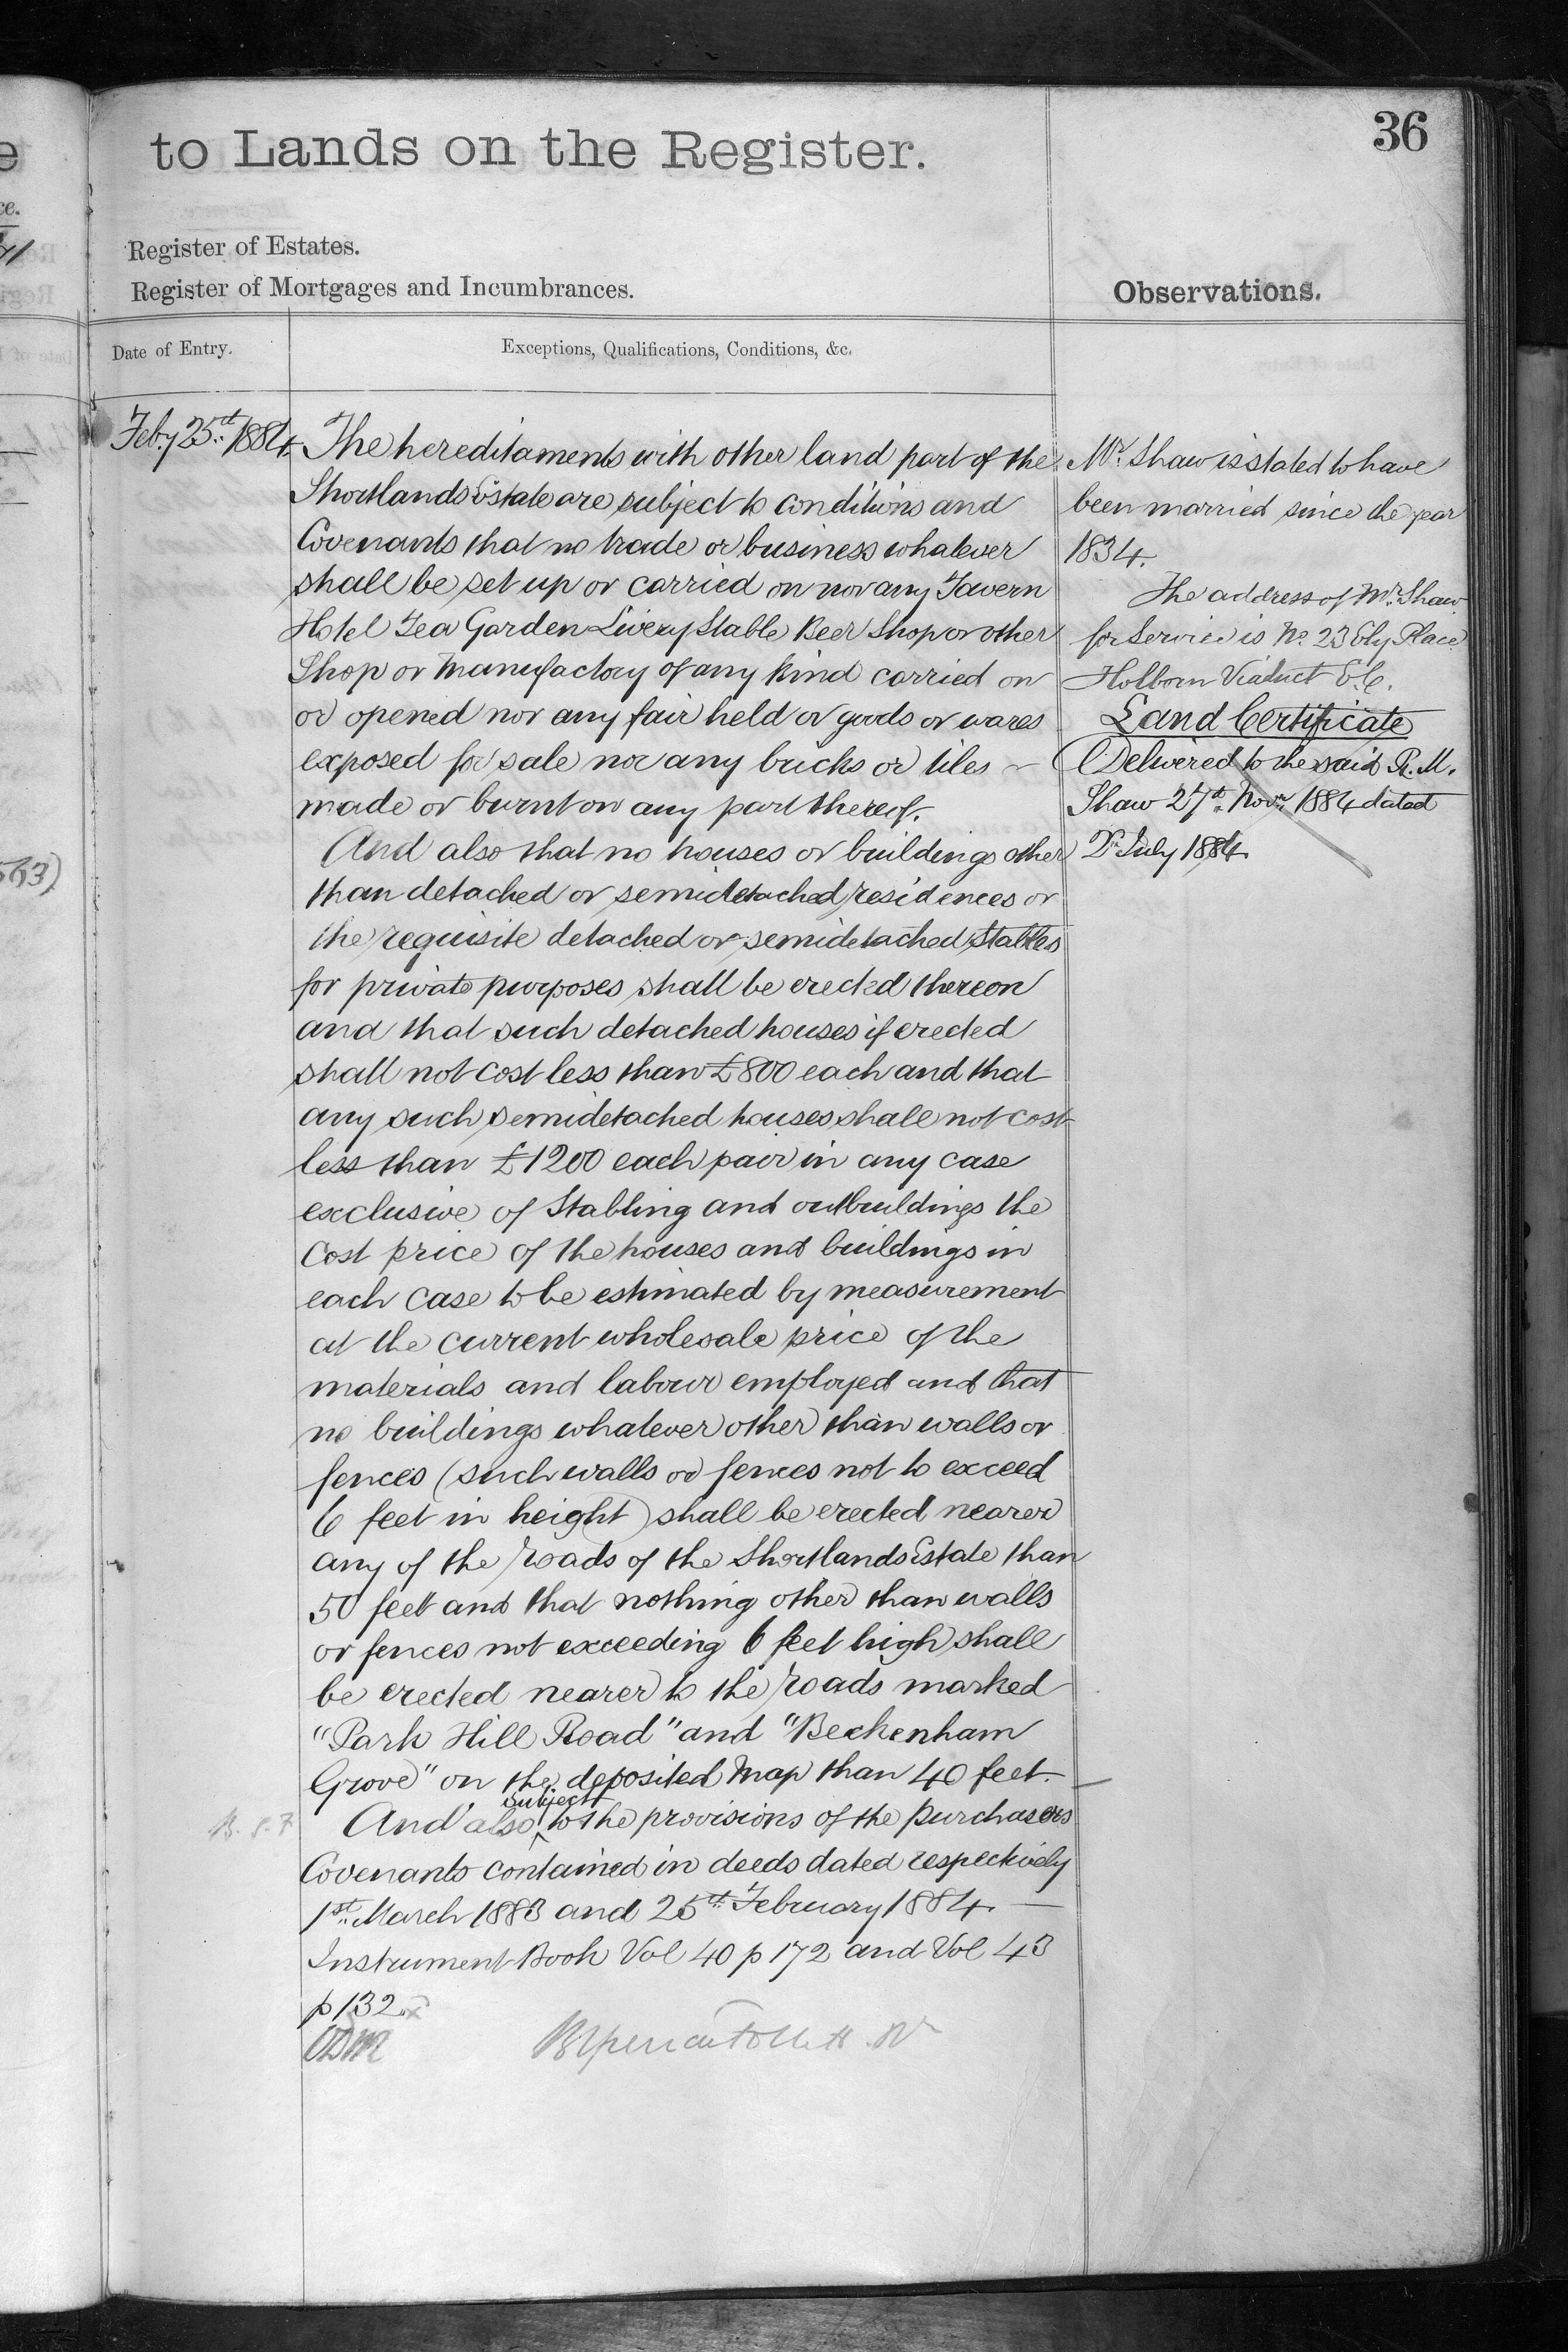 36
to Lands on the Register.
Register of Estates.
Register of Mortgages and Incumbrances.
Observations.
Date of Entry.
Exceptions, Qualifications, Conditions, &c.
Feby 25th 1884
The hereditaments with other land part of the
Shortlands Estate are subject to conditions and
Covenants that no trade or business whatever
shall be set up or carried on nor any Tavern
Hotel Tea Garden Livery Stable Beer Shop or other
Shop or Manufactory of any kind carried on
or opened nor any fair held or goods or wares
exposed for sale nor any bricks or tiles ~
made or burnt on any part thereof.
And also that no houses or buildings other
than detached or semidetached residences or
the requisite detached or semidetached Stables
for private purposes shall be erected thereon
and that such detached houses if erected
shall not cost less than £800 each and that
any such semidetached houses shall not cost
less than £1200 each pair in any case
exclusive of Stabling and outbuildings the
Cost price of the houses and buildings in
each case to be estimated by measurement
at the current wholesale price of the
materials and labour employed and that
no buildings whatever other than walls or
fences (such walls or fences not to exceed
6 feet in height) shall be erected nearer
any of the roads of the Shortlands Estate than
50 feet and that nothing other than walls
or fences not exceeding 6 feet high shall
be erected nearer to the roads marked
"Park Hill Road" and "Beckenham
Grove" on the deposited Map than 40 feet. —
And also subject to the provisions of the purchasers
Covenants contained in deeds dated respectively
1st March 1883 and 25th February 1884. —
Instrument Book Vol 40 p 172 and Vol 43
p 132.
Mr. Shaw is stated to have
been married since the year
1834.
The address of Mr. Shaw
for Service is No. 23 Ely Place
Holborn Viaduct E.C.
Land Certificate
Delivered to the said R. M.
Shaw 27th Novr. 1884 dated
2d July 1884